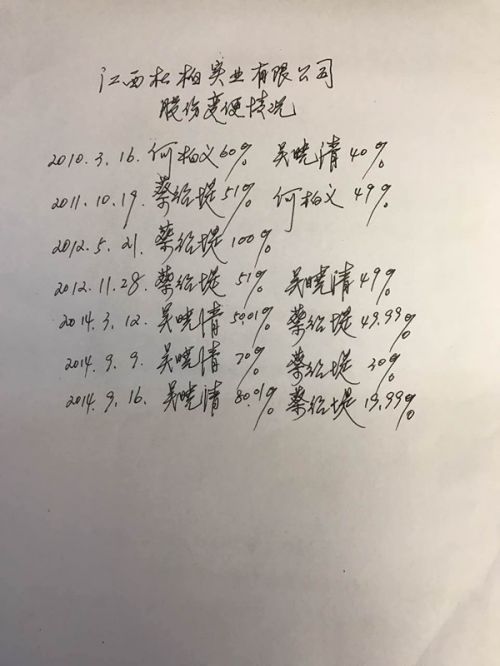 江西松柏实业有限公司
股份变更情况
2010.3.16. 何柏义60% 吴晓清40%
2011.10.19. 蔡绍堤51% 何柏义49%
2012.5.21. 蔡绍堤100%
2012.11.28. 蔡绍堤51% 吴晓清49%
2014.3.12. 吴晓清50.01% 蔡绍堤49.99%
2014.9.9. 吴晓清70% 蔡绍堤30%
2014.9.16. 吴晓清80.01% 蔡绍堤19.99%